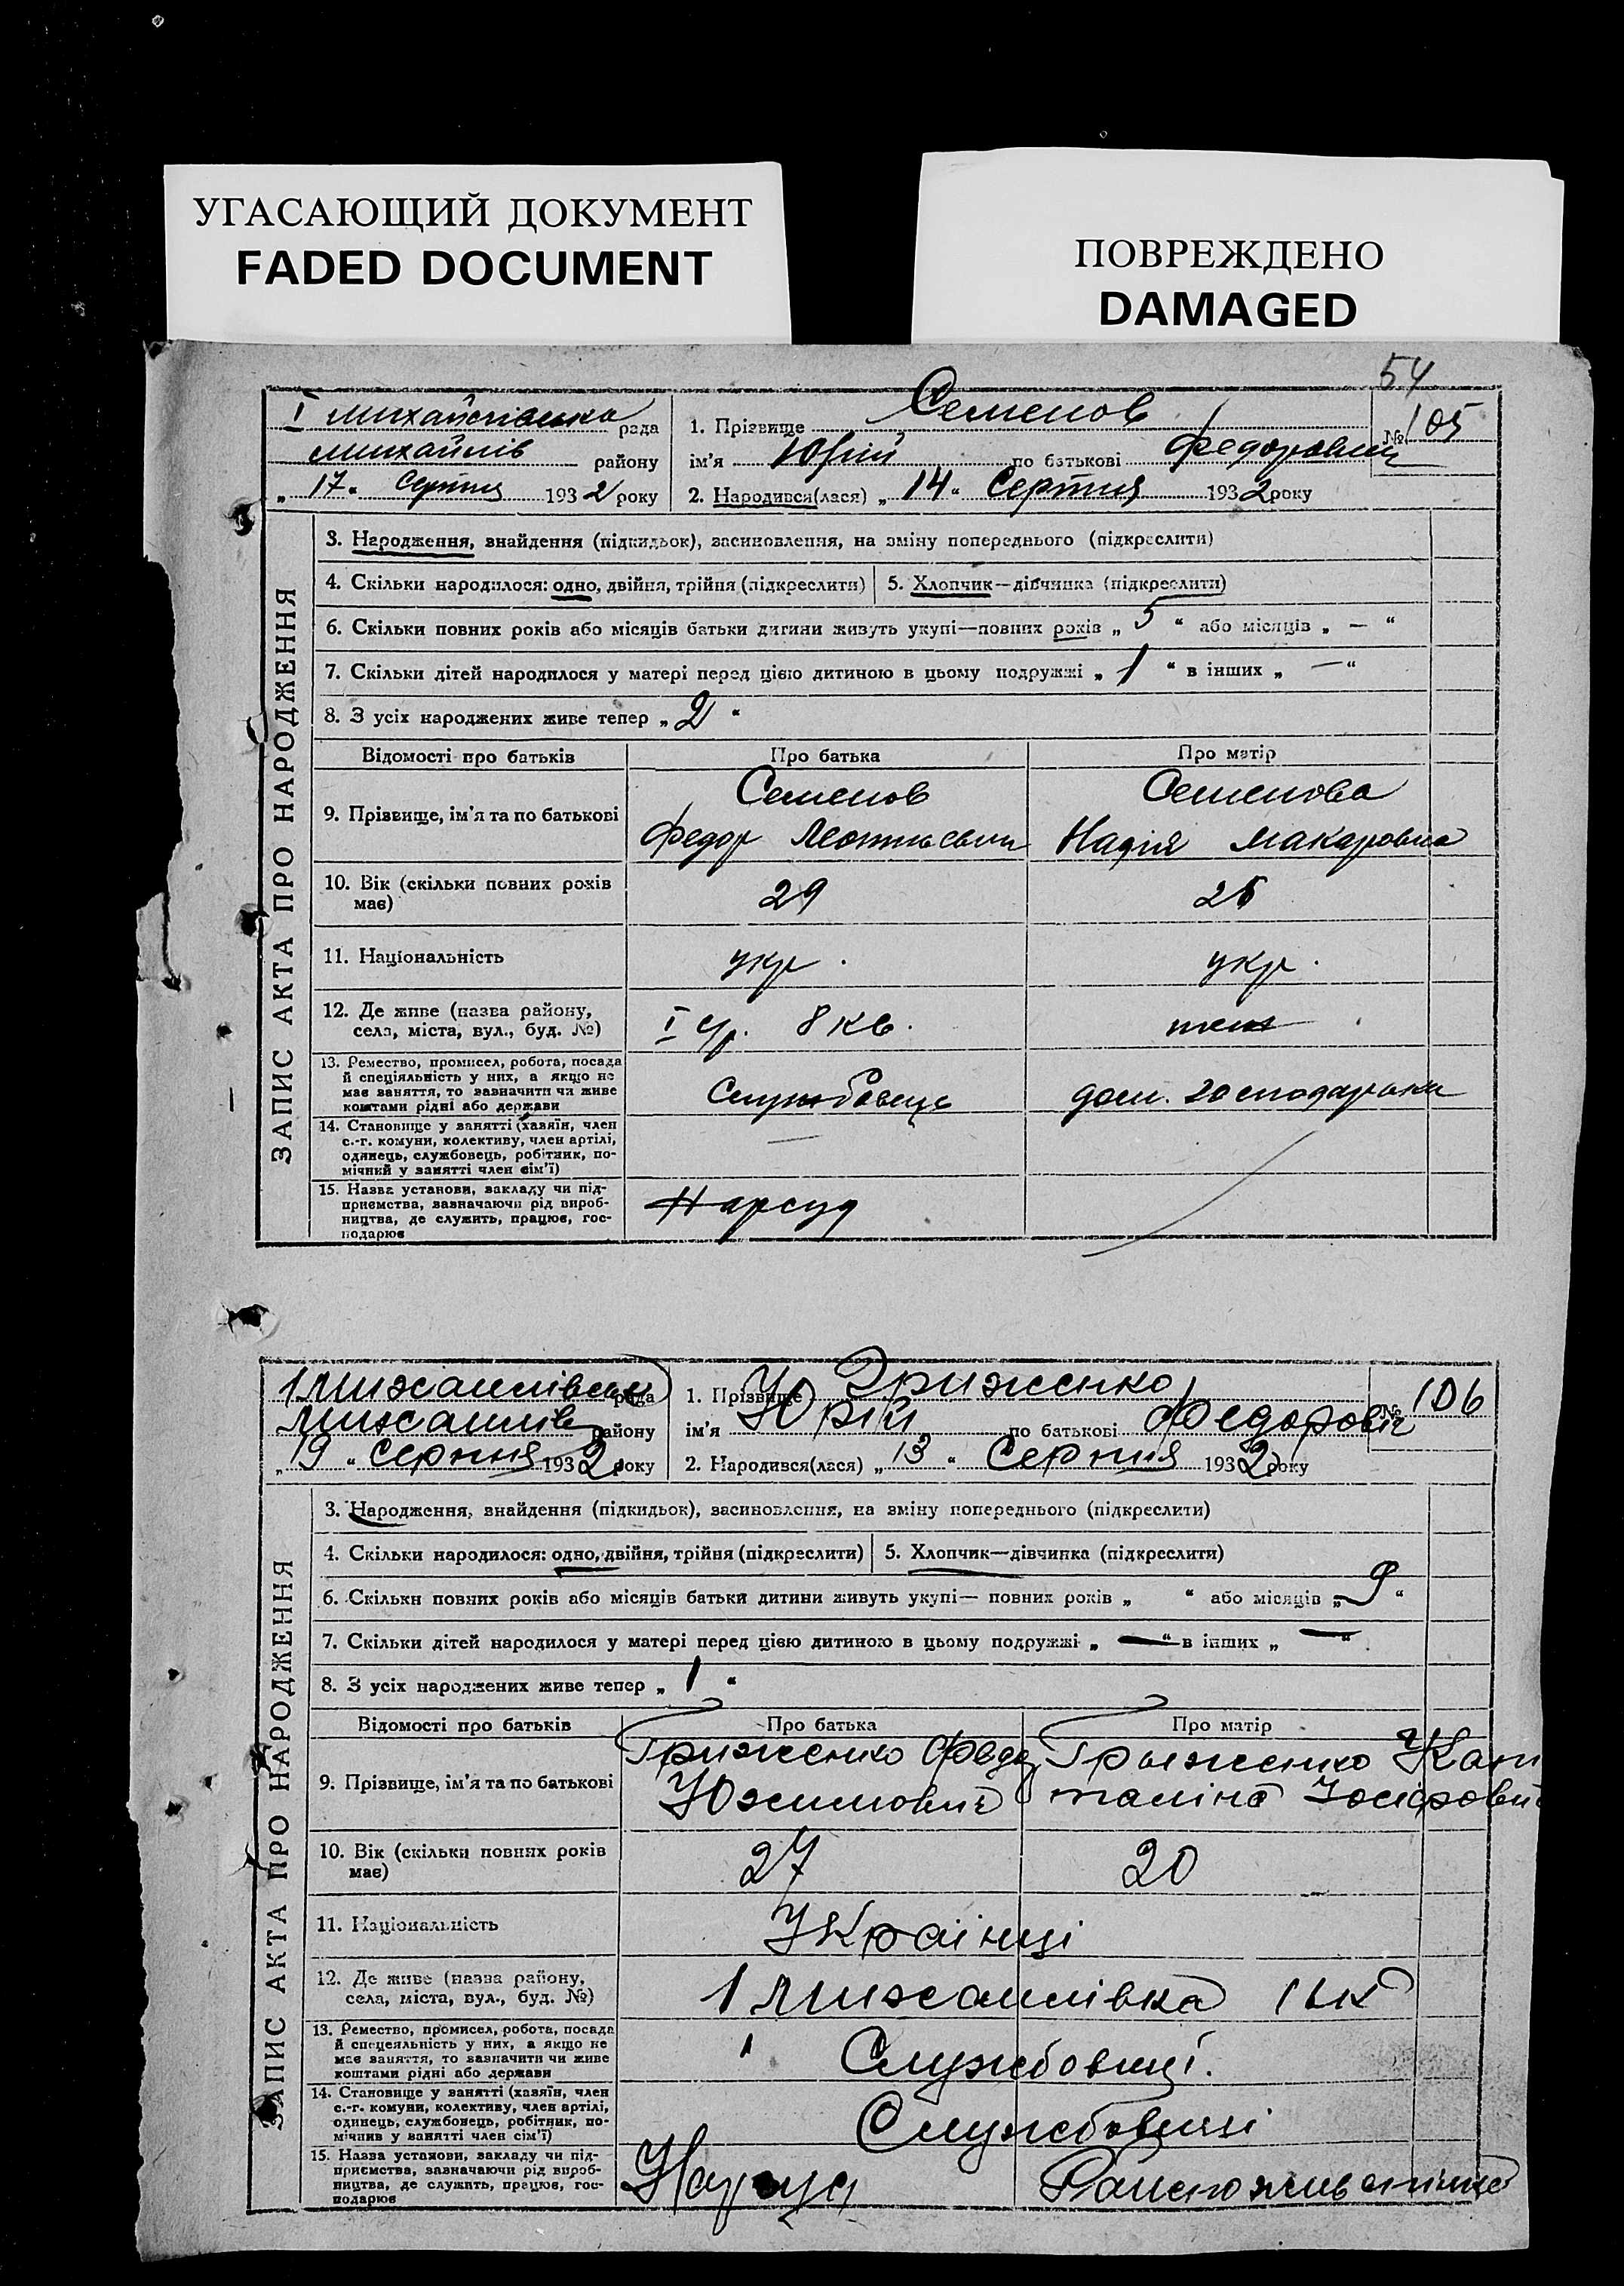 УГАСАЮЩИЙ ДОКУМЕНТ
FADED DOCUMENT
ПОВРЕЖДЕНО
DAMAGED
54
І Михайлівська рада
Михайлів району
„17“ Серпня 1932 року
1. Прізвище Семенов
№ 105
ім'я Юрій по батькові Федорович
2. Народився(лася) „14“ Серпня 1932 року
ЗАПИС АКТА ПРО НАРОДЖЕННЯ
3. Народження, знайдення (підкидьок), засиновлення, на зміну попереднього (підкреслити)
4. Скільки народилося: одно, двійня, трійня (підкреслити)
5. Хлопчик—дівчинка (підкреслити)
6. Скільки повних років або місяців батьки дитини живуть укупі—повних років „5“ або місяців „—“
7. Скільки дітей народилося у матері перед цією дитиною в цьому подружжі „1“ в інших „—“
8. З усіх народжених живе тепер „2“
Відомості про батьків
Про батька
Про матір
9. Прізвище, ім'я та по батькові
Семенов
Федор Леонтьевич
Семенова
Надія Макаровна
10. Вік (скільки повних років
має)
29
25
11. Національність
укр.
укр.
12. Де живе (назва району,
села, міста, вул., буд. №)
І 8 кв.
13. Ремество, промисел, робота, посада
й спеціяльність у них, а якщо не
має заняття, то зазначити чи живе
коштами рідні або держави
Службовець
дом. господарька
14. Становище у занятті (хазяїн, член
с.-г. комуни, колективу, член артілі,
одинець, службовець, робітник, по-
мічний у занятті член сім'ї)
—
15. Назва установи, закладу чи під-
приємства, зазначаючи рід вироб-
ництва, де служить, працює, гос-
подарює
Нарсуд
1 Михайлівська рада
Михайлів району
„19“ Серпня 1932 року
1. Прізвище Гриженко
№ 106
ім'я Юрій по батькові Федорович
2. Народився(лася) „13“ Серпня 1932 року
ЗАПИС АКТА ПРО НАРОДЖЕННЯ
3. Народження, знайдення (підкидьок), засиновлення, на зміну попереднього (підкреслити)
4. Скільки народилося: одно, двійня, трійня (підкреслити)
5. Хлопчик—дівчинка (підкреслити)
6. Скільки повних років або місяців батьки дитини живуть укупі— повних років „ “ або місяців „9“
7. Скільки дітей народилося у матері перед цією дитиною в цьому подружжі „—“ в інших „—“
8. З усіх народжених живе тепер „1“
Відомості про батьків
Про батька
Про матір
9. Прізвище, ім'я та по батькові
Гриженко Федор
Юхимович
Грыженко
10. Вік (скільки повних років
має)
27
20
11. Національність
Українці
12. Де живе (назва району,
села, міста, вул., буд. №)
1 Михайлівка
13. Ремество, промисел, робота, посада
й спецеяльність у них, а якщо не
має заняття, то зазначити чи живе
коштами рідні або держави
Службовці.
14. Становище у занятті (хазяїн, член
с.-г. комуни, колективу, член артілі,
одинець, службовець, робітник, по-
мічнив у занятті член сім'ї)
Службовці
15. Назва установи, закладу чи під-
приємства, зазначаючи рід вироб-
ництва, де служить, працює, гос-
подарює
Нарсуд